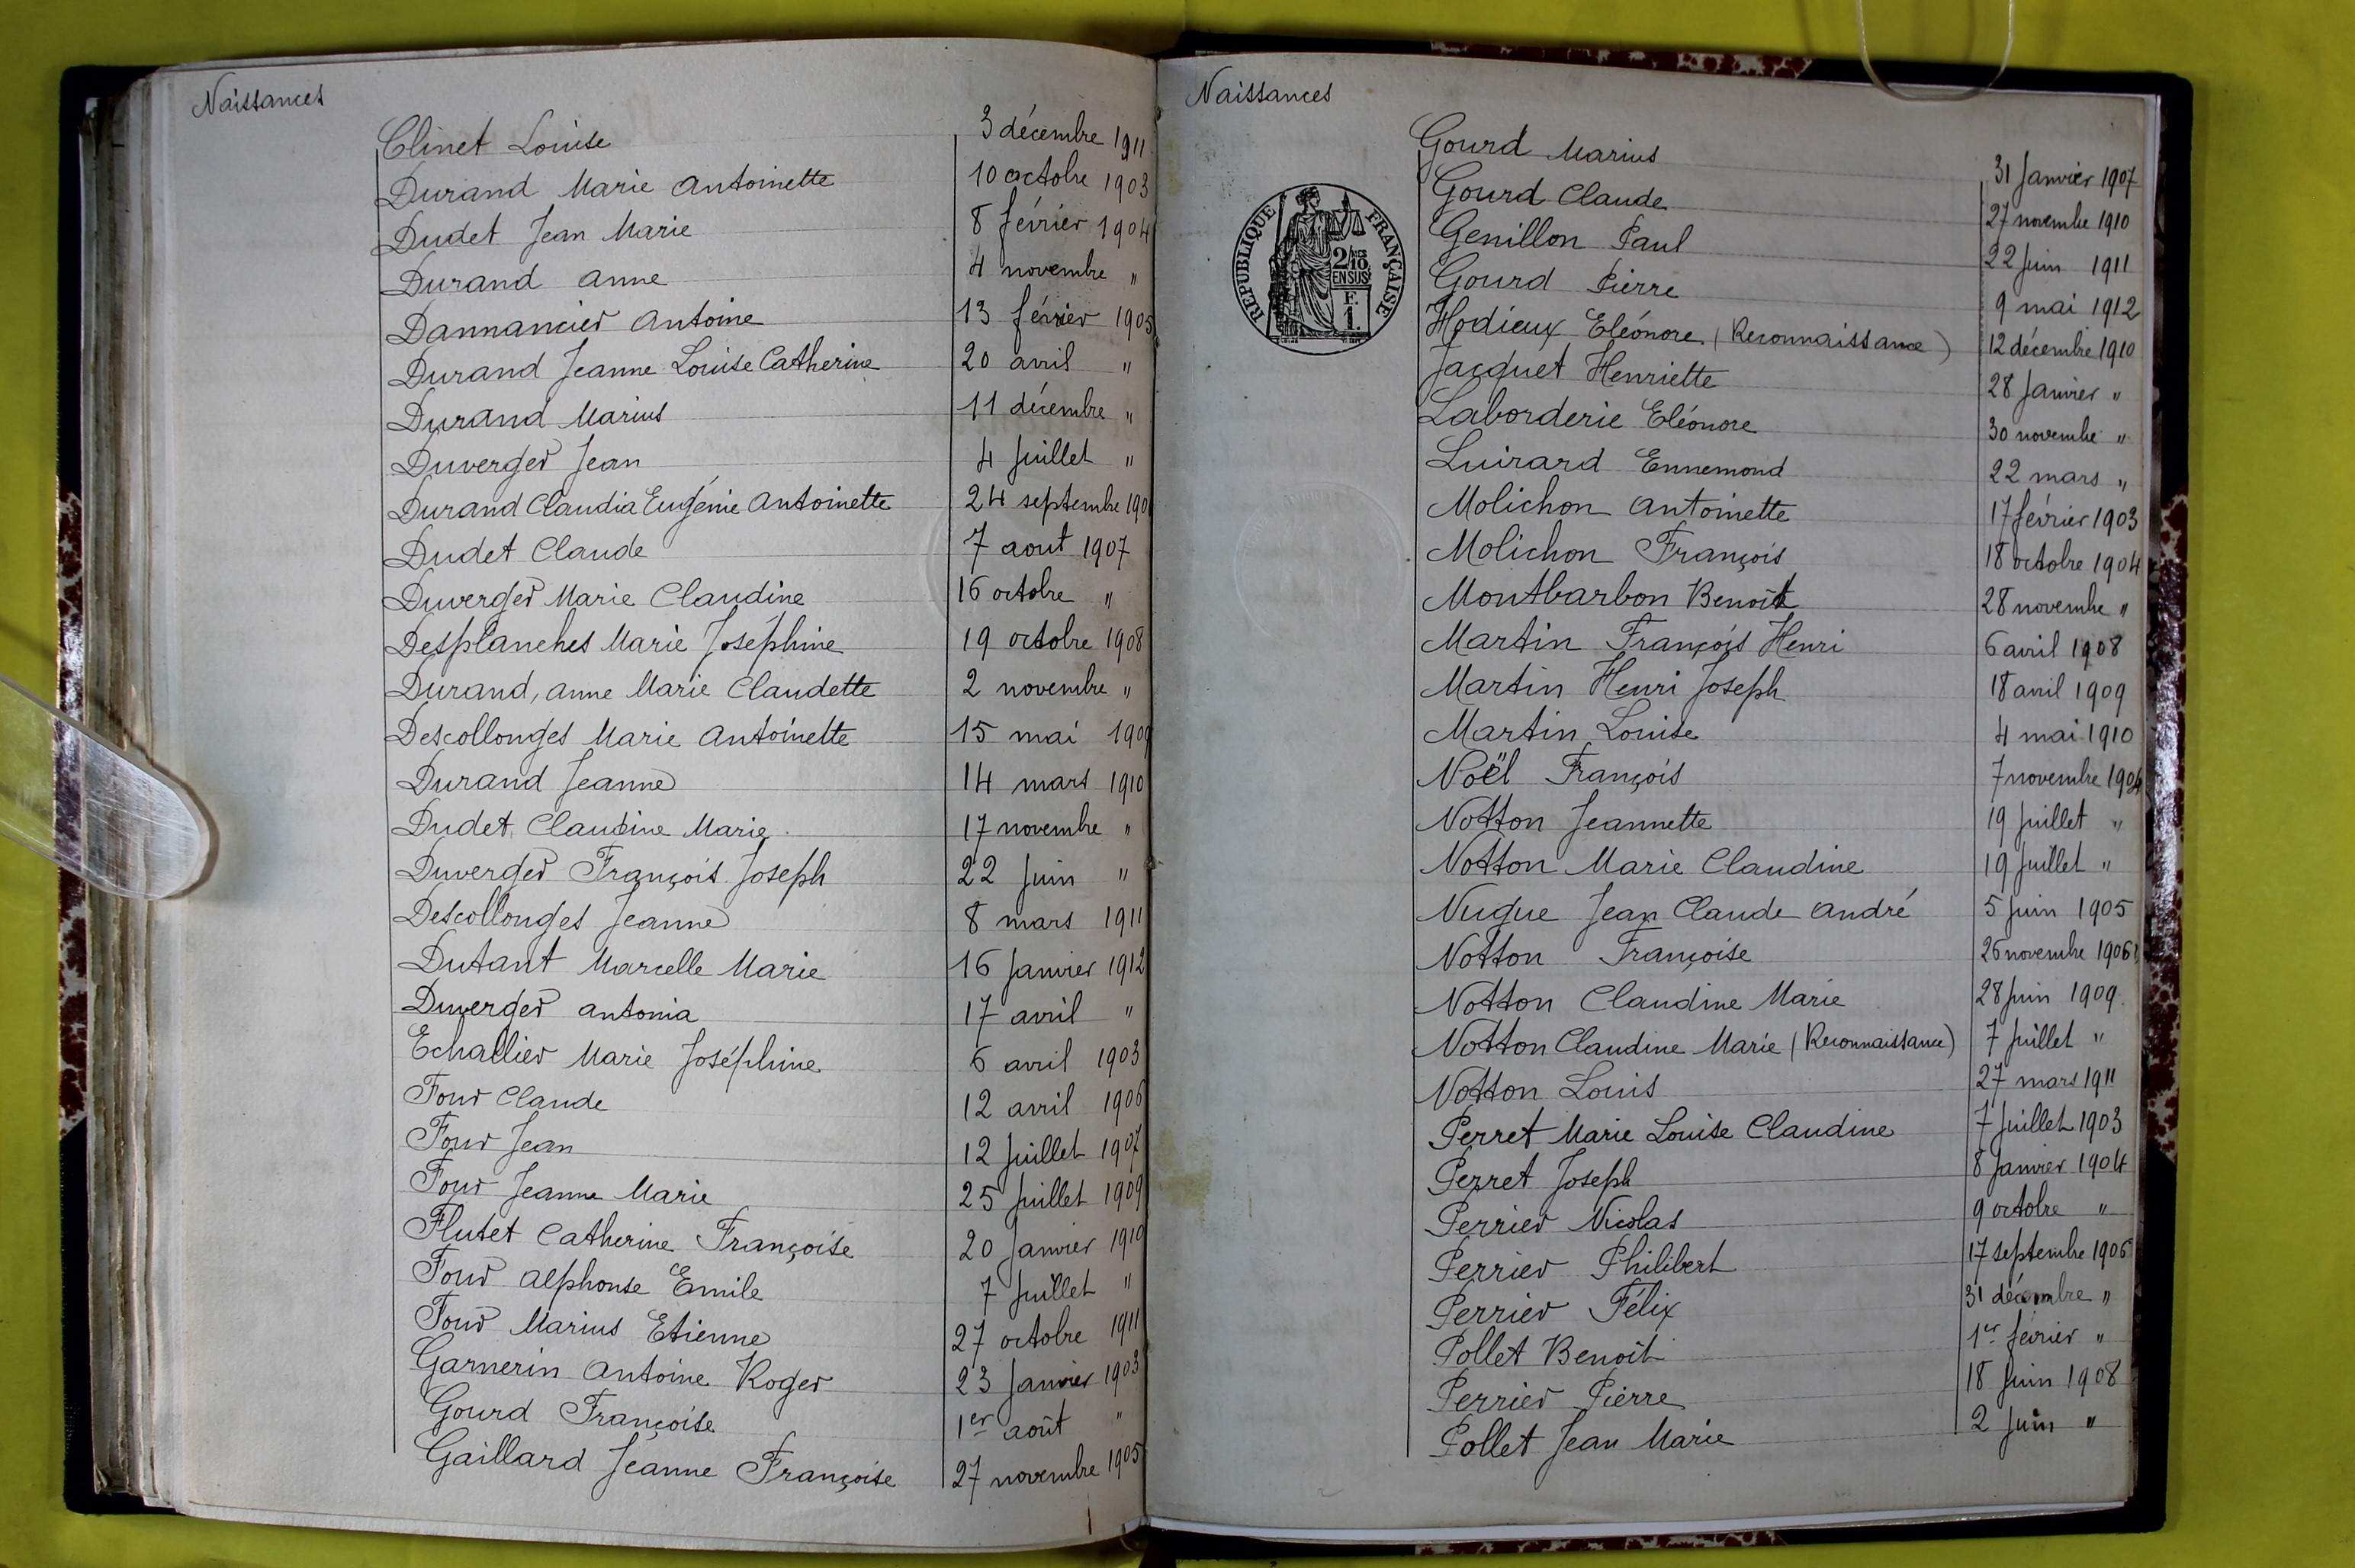 Naissances
Clinet Louise 3 décembre 1911
Durand Marie Antoinette 10 octobre 1903
Dudet Jean Marie 8 février 1904
Durand Anne 4 novembre "
Dannancier Antoine 13 février 1905
Durand Jeanne Louise Catherine 20 avril "
Durand Marius 11 décembre "
Duverger Jean 4 Juillet "
Durand Claudia Eugénie Antoinette 24 septembre 190
Dudet Claude 7 aout 1907
Duverger Marie Claudine 16 octobre "
Desplanches Marie Joséphine 19 octobre 1908
Durand, Anne Marie Claudette 2 novembre "
Descollonges Marie Antoinette 15 mai 1909
Durand Jeanne 14 mars 1910
Dudet Claudine Marie 17 novembre "
Duverger François Joseph 22 Juin "
Descollonges Jeanne 8 mars 1911
Dutant Marcelle Marie 16 Janvier 1912
Duverger Antonia 17 avril "
Echallier Marie Joséphine 6 avril 1903
Four Claude 12 avril 1906
Four Jean 12 Juillet 1907
Four Jeanne Marie 25 Juillet 1909
Flutet Catherine Françoise 20 Janvier 1910
Four Alphonse Emile 7 Juillet "
Four Marius Etienne 27 octobre 1911
Garnerin Antoine Roger 23 Janvier 1903
Gourd Françoise 1er août "
Gaillard Jeanne Françoise 27 novembre 1905
Naissances
REPUBLIQUE FRANÇAISE
2/10 EN SUS
F. 1.
Gourd Marius 31 Janvier 1907
Gourd Claude 27 novembre 1910
Genillon Paul 22 Juin 1911
Gourd Pierre 9 mai 1912
Hodieux Eléonore (Reconnaissance) 12 décembre 1910
Jacquet Henriette 28 Janvier "
Laborderie Eléonore 30 novembre "
Luirard Ennemond 22 mars "
Molichon Antoinette 17 février 1903
Molichon François 18 octobre 1904
Montbarbon Benoit 28 novembre "
Martin François Henri 6 avril 1908
Martin Henri Joseph 18 avril 1909
Martin Louise 4 mai 1910
Noël François 7 novembre 1904
Notton Jeannette 19 Juillet "
Notton Marie Claudine 19 Juillet "
Nugue Jean Claude André 5 Juin 1905
Notton Françoise 26 novembre 1906
Notton Claudine Marie 28 Juin 1909
Notton Claudine Marie (Reconnaissance) 7 Juillet "
Notton Louis 27 mars 1911
Perret Marie Louise Claudine 7 Juillet 1903
Perret Joseph 8 Janvier 1904
Perrier Nicolas 9 octobre "
Perrier Philibert 17 septembre 1906
Perrier Félix 31 décembre "
Pollet Benoît 1er février "
Perrier Pierre 18 Juin 1908
Pollet Jean Marie 2 Juin "